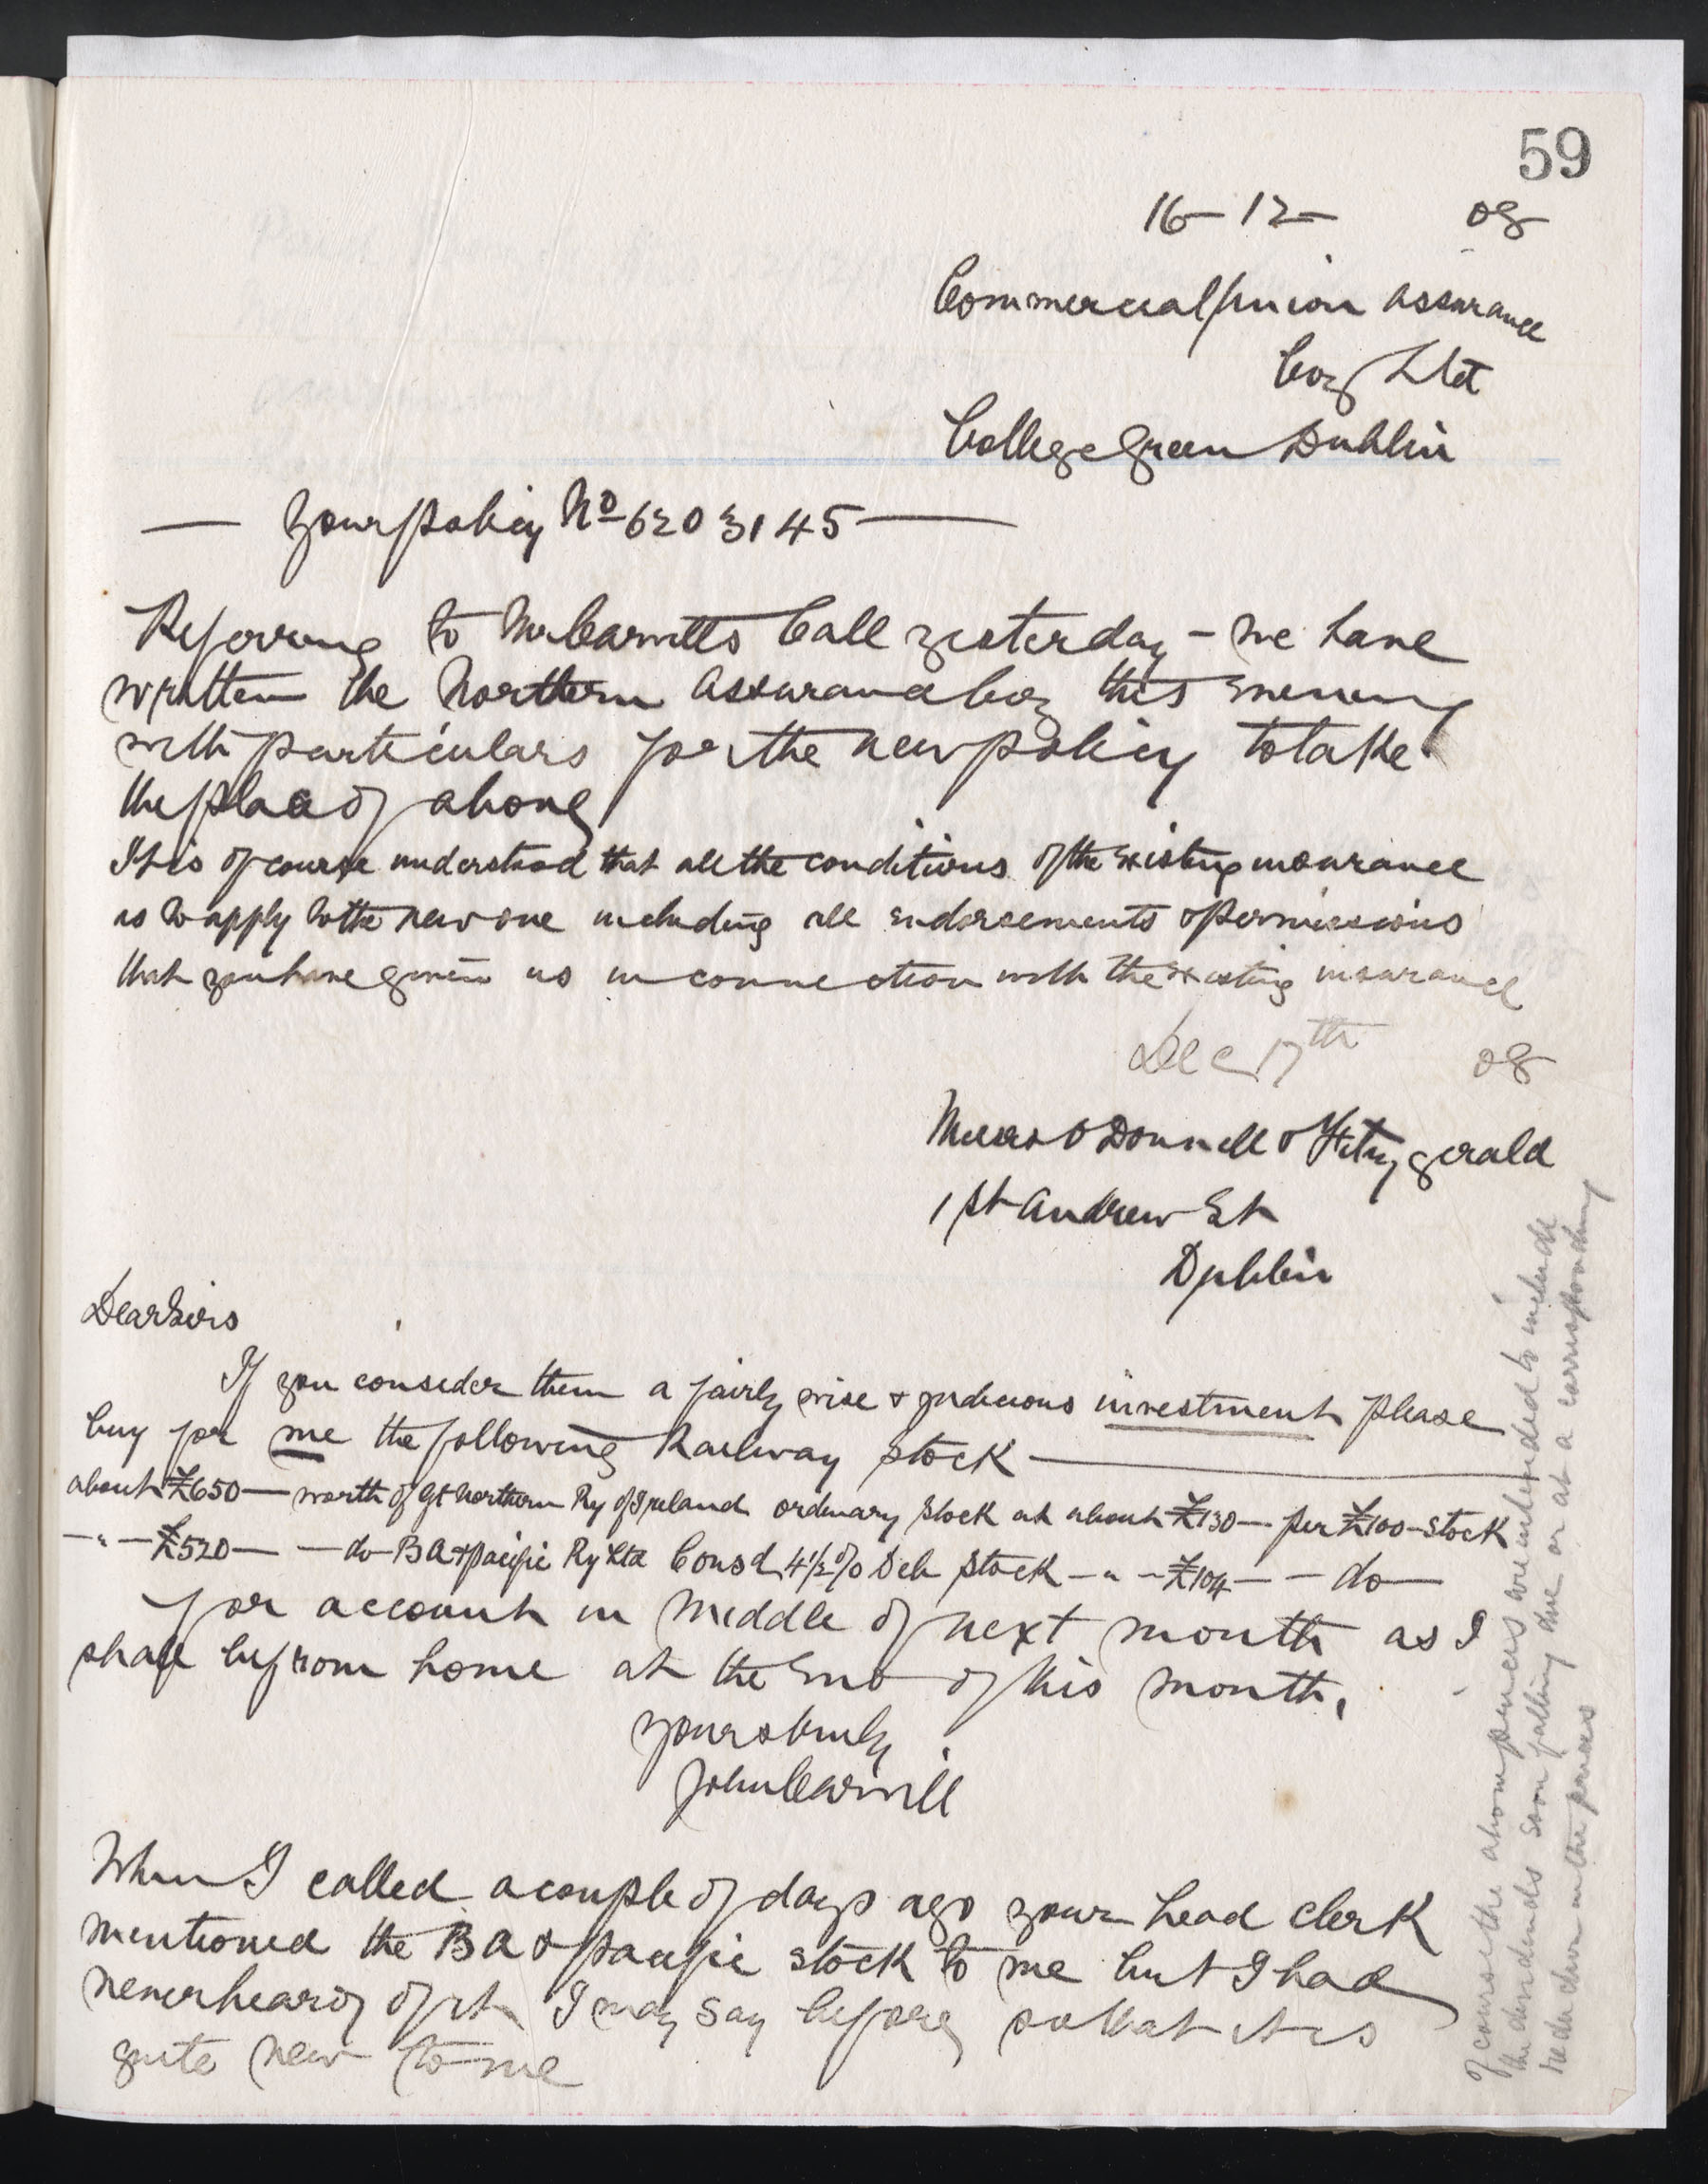 59
16-12- 08
Commercial Union Assurance
Coy Ltd
College Green Dublin
— Your Policy No 6203145 —
Referring to Mr Carvills Call yesterday - we have
written the Northern Assurance Coy this evening
with particulars for the new policy to take
the place of above
It is of course understood that all the conditions of the existing insurance
is to apply to the new one including all endorsements & permissions
that you have given us in connection with the existing insurance
Dec 17th 08
Messrs O Donnell & Fitzgerald
1 St Andrew St
Dublin
Dear Sirs
If you consider them a fairly wise & judicious investment please
buy for me the following Railway stock —
about £650 — worth of Gt Northern Ry of Ireland ordinary stock at about £130 — per £100 - stock
— " — £520 — — do — BA & pacific Ry Ltd Consd 4½% Deb stock — " — £104 — — do —
for account in middle of next month as I
shall be from home at the end of this month.
yours truly
John Carvill
When I called a couple of days ago your head clerk
mentioned the BA & pacific stock to me but I had
never heard of it I may say before so that it is
quite new to me
Of course the above prices are intended to include
the dividends soon falling due or at a corresponding
reduction in the prices